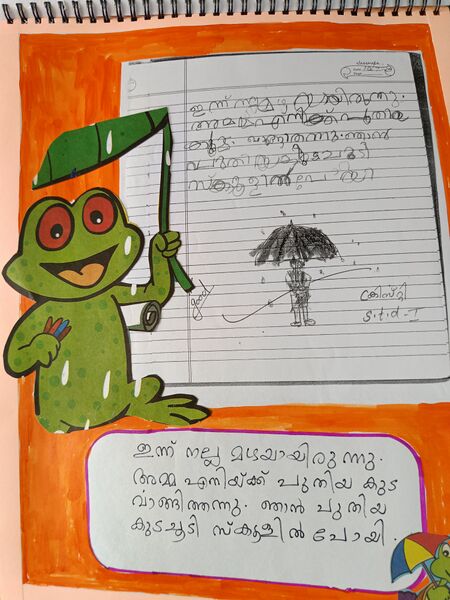 classmate
Date
Page
ഇന്ന് നല്ല മഴയായിരുന്നു.
അമ്മ എനിക്ക് പുതിയ
കുട വാങ്ങിതന്നു. ഞാൻ
പുതിയ കുടചൂടി
സ്കൂളിൽ പോയി
good
ക്രിസ്റ്റി
S.t.d-I
ഇന്ന് നല്ല മഴയായിരുന്നു.
അമ്മ എനിയ്ക്ക് പുതിയ കുട
വാങ്ങിത്തന്നു. ഞാൻ പുതിയ
കുടചൂടി സ്കൂളിൽ പോയി.